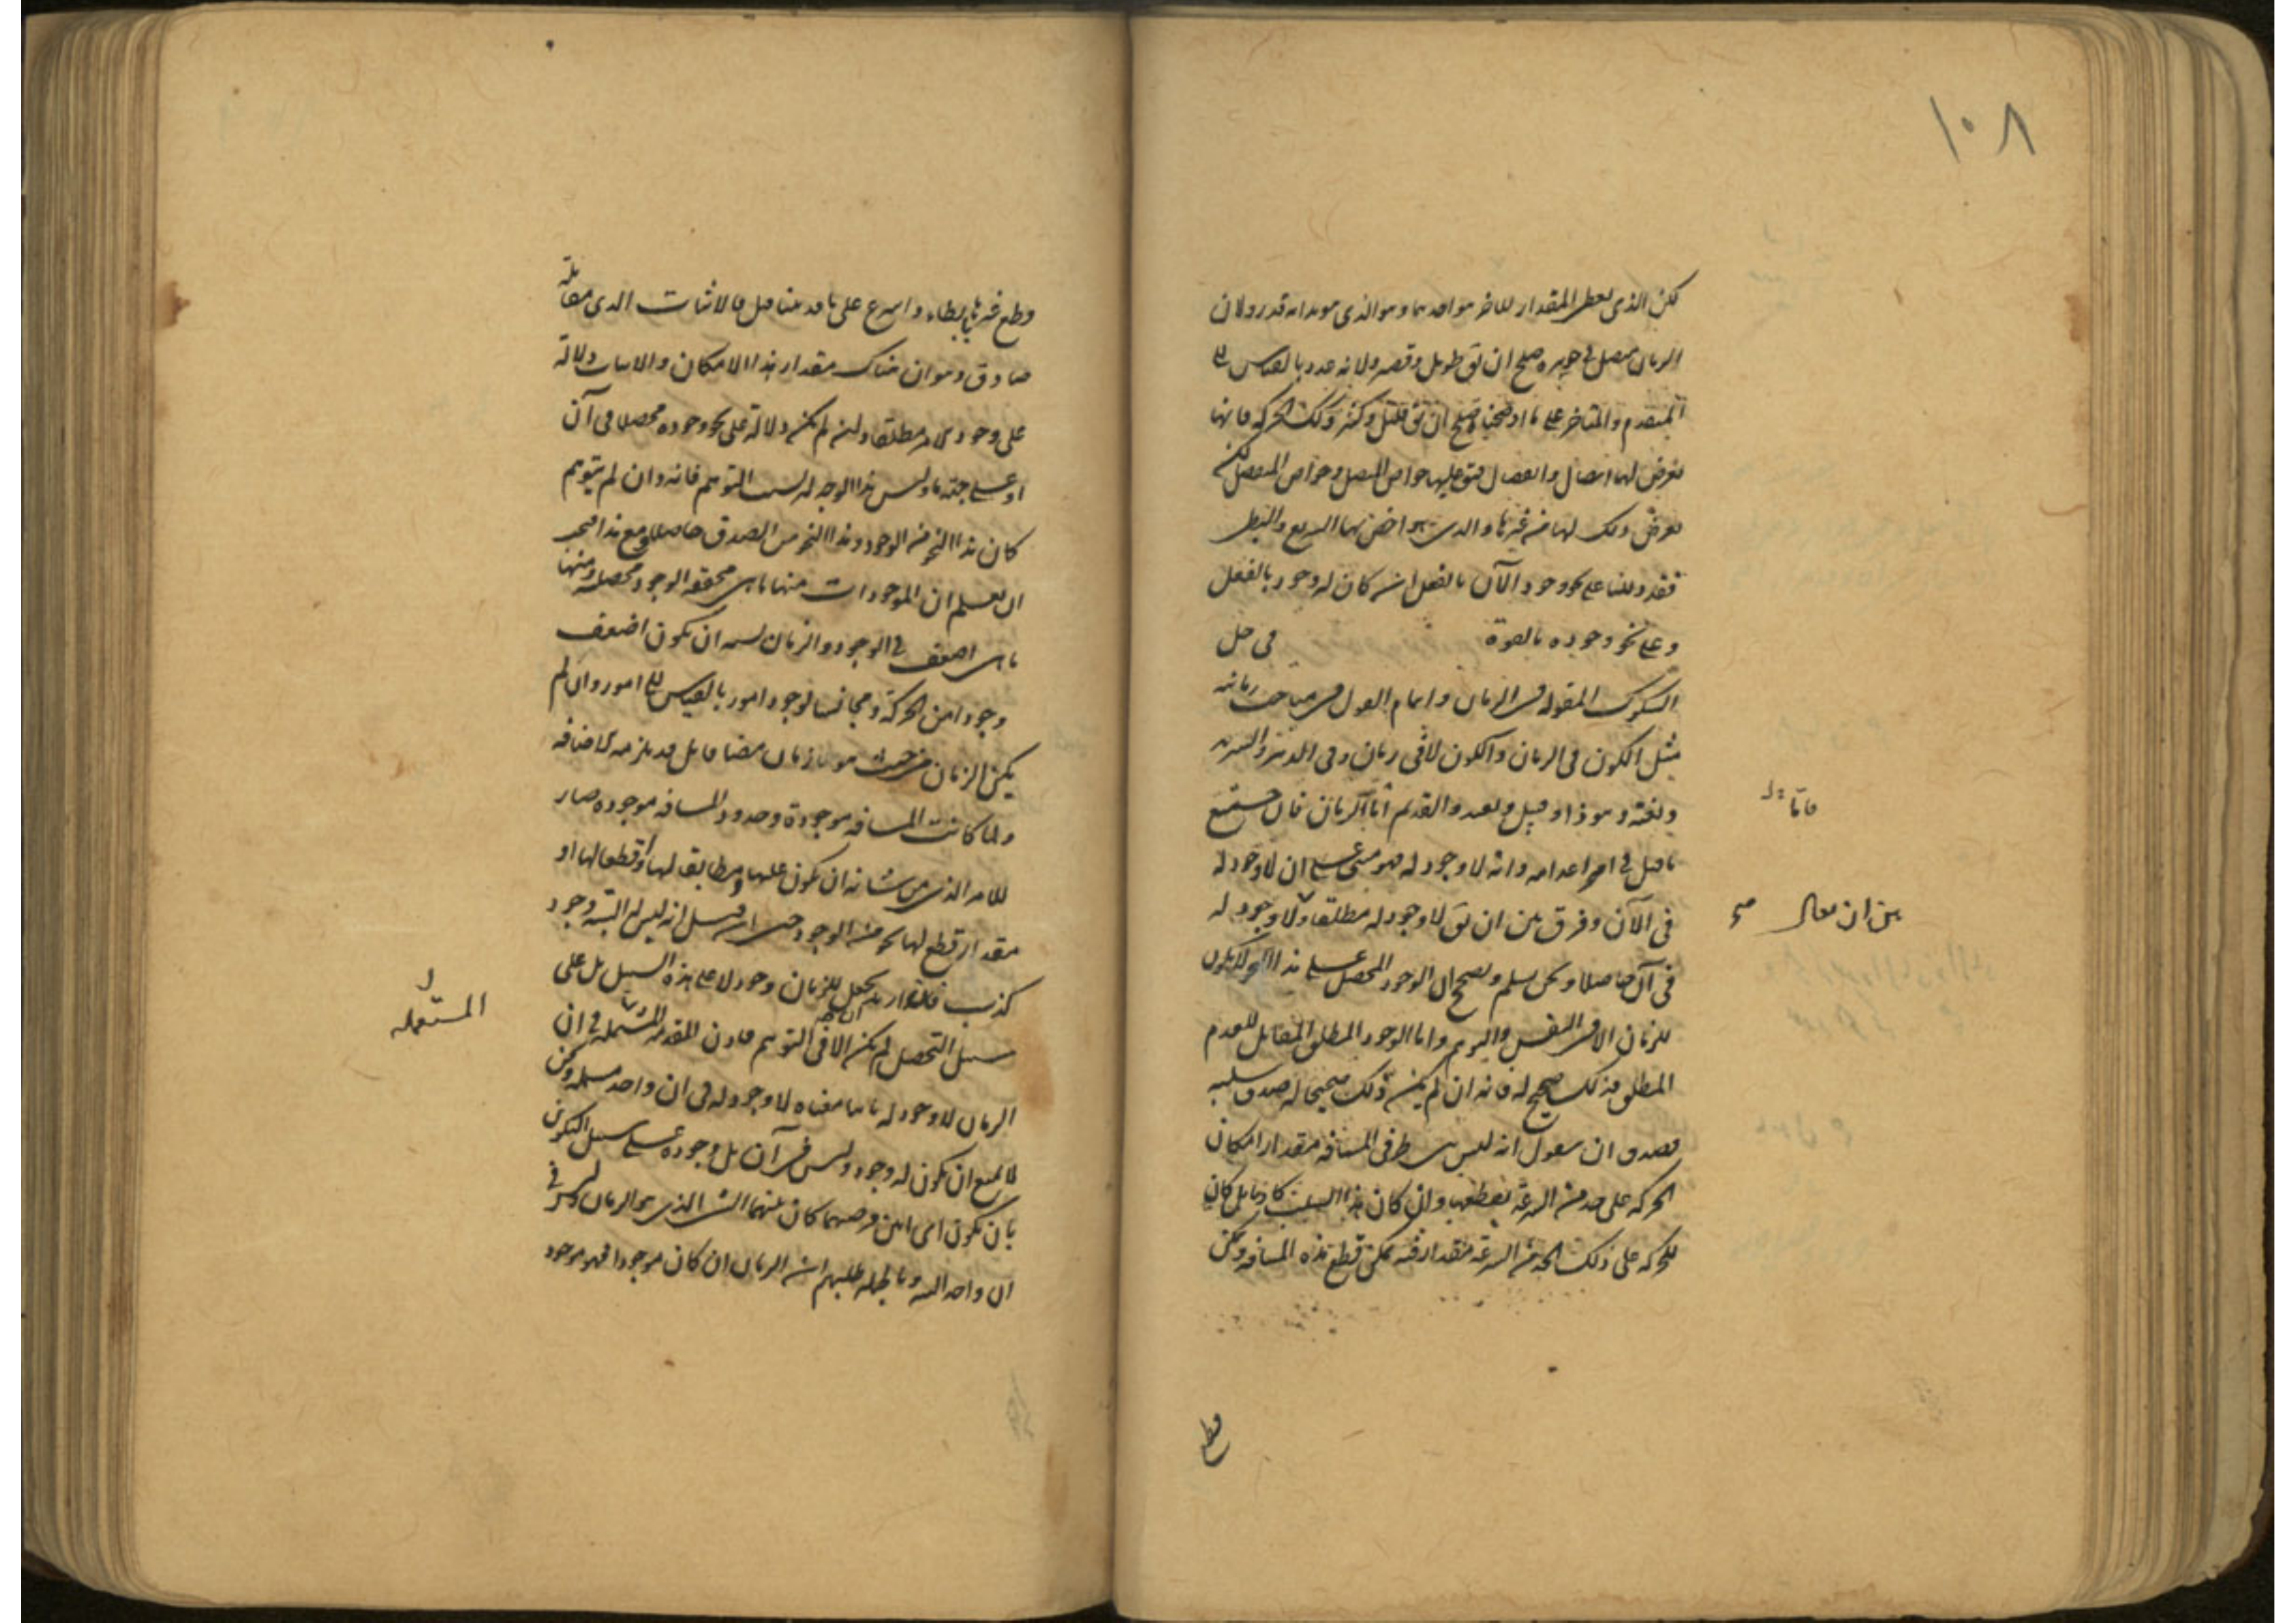 ١٠٨
لكن الذى يعطى المقدار للاخر هو احدهما وهو الذى هو بذاته قدر ولان
الزمان متصل فى جوهره صلح ان يق طويل وقصير ولانه عدد بالقياس الى
المتقدم والمتاخر على ما اوضحنا صلح ان يق قليل وكثير وكذلك الحركة فانها
يعرض لها اتصال وانفصال فيق عليها خواص المتصل وخواص المنفصل لكنه
يعرض ذلك لها من غيرها والذى هو اخص بها السريع والبطى
فقد دللنا على نحو وجود الآن بالفعل ان كان له وجود بالفعل
وعلى نحو وجوده بالقوة فى حل
الشكوك المقولة فى الزمان واتمام القول فى مباحث زمانية
مثل الكون فى الزمان والكون لا فى زمان وفى الدهر والسرمد
وبغتة وهوذا وقبيل وبعيد والقديم اما الزمان فان جميع
فاما
ما قيل فى امر اعدامه وانه لا وجود له فهو مبنى على ان لا وجود له
فى الآن وفرق بين ان يق لا وجود له مطلقا ولا وجود له
بين ان يقال صح
فى آن حاصلا ونحن نسلم ونصحح ان الوجود المحصل على هذا النحو لا يكون
للزمان الا فى النفس والتوهم واما الوجود المطلق المقابل للعدم
المطلق فذلك صحيح له فانه ان لم يكن ذلك صحيحا له صدق سلبه
فصدق ان نقول انه ليس بين طرفى المسافة مقدار امكان
الحركة على حد من السرعة يقطعها وان كان هذا السلب كاذبا بل كان
للحركة على ذلك الحد من السرعة مقدار فيه يمكن قطع هذه المسافة ويمكن
قطع
وقطع غيرها بابطاء واسرع على ما قد بينا قبل فالاثبات الذى مقابله
صادق وهو ان هناك مقدار هذا الامكان والاثبات دلالة
على وجود الامر مطلقا وان لم يكن دلالة على نحو وجوده محصلا فى آن
او على جهة ما وليس هذا الوجه له بسبب التوهم فانه وان لم يتوهم
كان هذا النحو من الوجود وهذا النحو من الصدق حاصلا ومع هذا فيجب
ان يعلم ان الموجودات منها ما هى محققة الوجود محصلة ومنها
ما هى اضعف فى الوجود والزمان يشبه ان يكون اضعف
وجودا من الحركة ومجانسا لوجود امور بالقياس الى امور وان لم
يكن الزمان من حيث هو زمان مضافا بل قد يلزمه الاضافة
ولما كانت المسافة موجودة وحدود المسافة موجودة صار
للامر الذى من شانه ان يكون عليها ومطابقا لها او قطعا لها او
مقدار قطع لها نحو من الوجود حتى ان قيل انه ليس له البتة وجود
كذب فاذا اريد ان يجعل للزمان وجود لا على هذه السبيل بل على
سبيل التحصل لم يكن الا فى التوهم فاذن المقدمة المستعملة فى ان
المستعمله
الزمان لا وجود له ثابتا معناه لا وجود له فى ان واحد مسلمة ونحن
لا نمنع ان يكون له وجود وليس فى آن بل وجوده على سبيل التكون
بان يكون اى آنين فرضتهما كان بينهما الشى الذى هو الزمان وليس فى
ان واحد البتة وبالجملة طلبهم ان الزمان ان كان موجودا فهو موجود